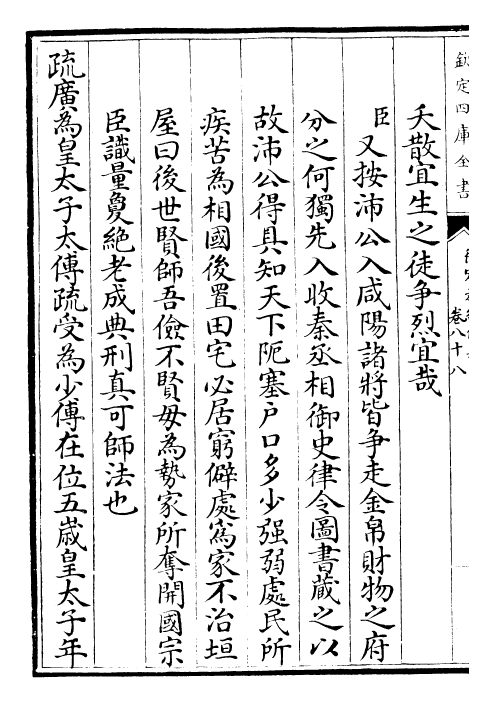 欽定四庫全書
卷八十八
夭散宜生之徒争烈宜哉
臣又按沛公入咸陽諸將皆争走金帛財物之府
分之何獨先入收秦丞相御史律令圖書蔵之以
故沛公得具知天下阨塞户口多少强弱處民所
疾苦為相國後置田宅必居窮僻處為家不治垣
屋曰後世賢師吾儉不賢毋為勢家所奪開國宗
臣識量敻絶老成典刑真可師法也
疏廣為皇太子太傅疏受為少傅在位五嵗皇太子年